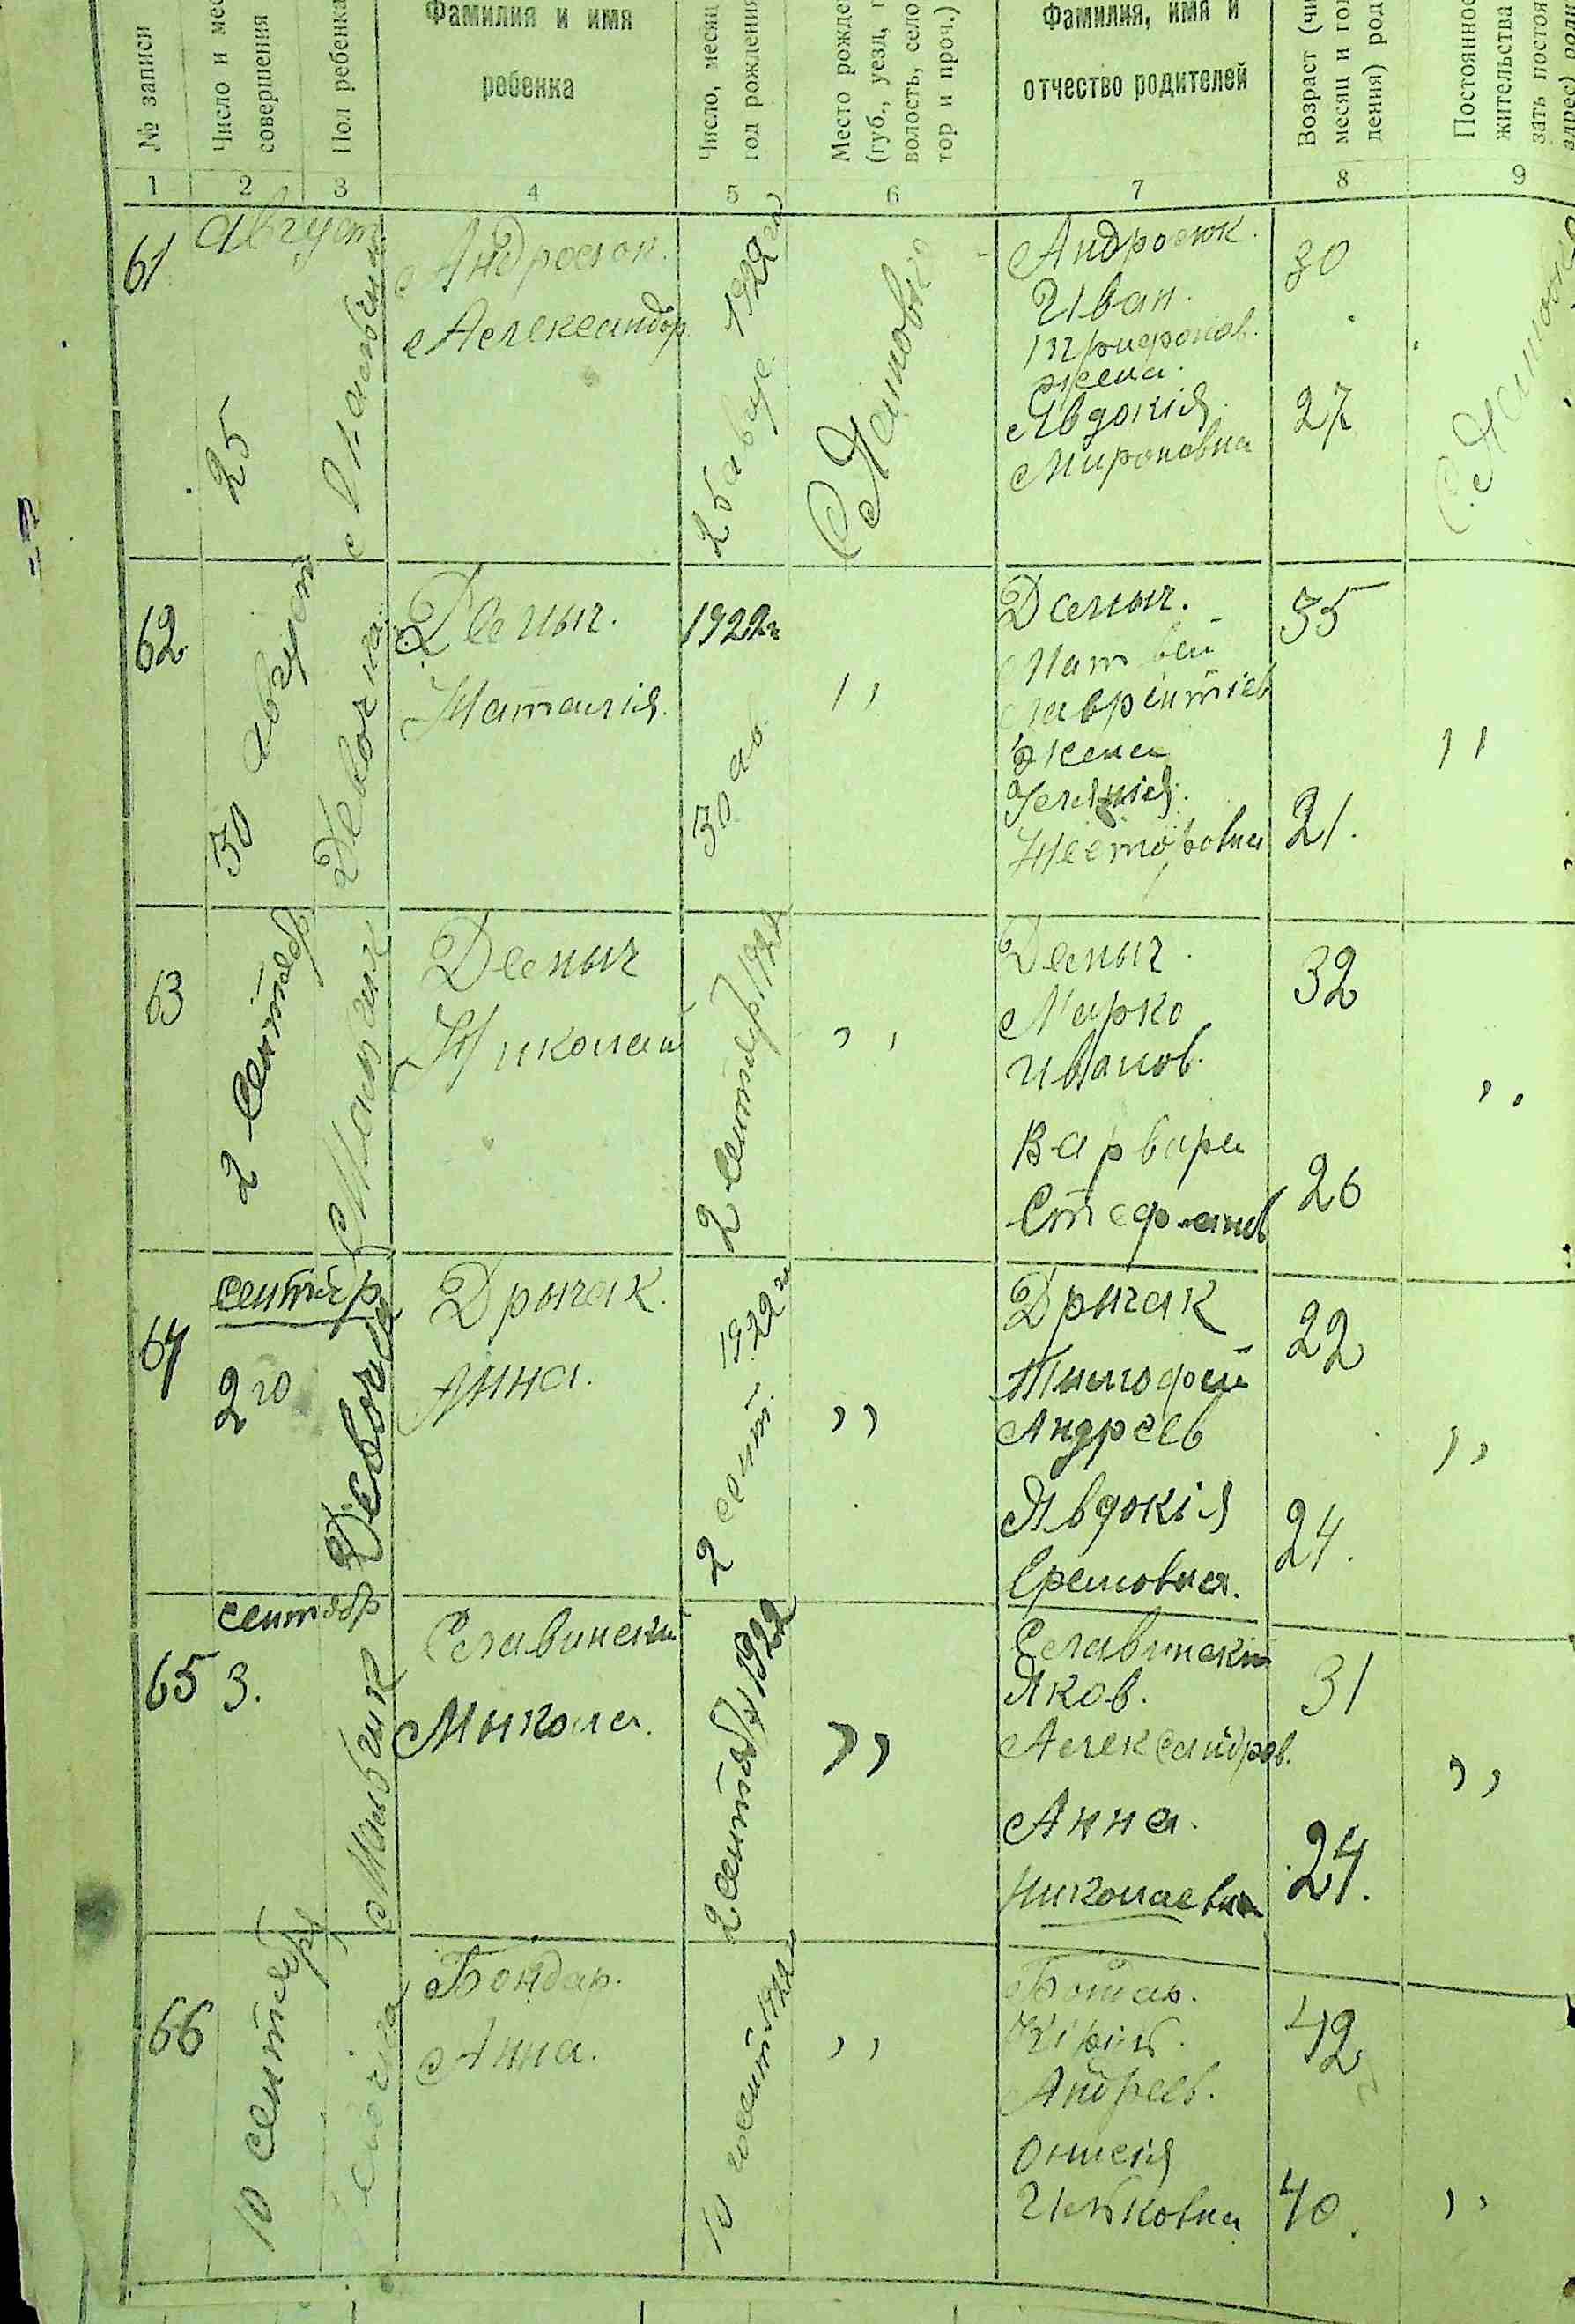 № записи
Число и мес
совершения
Пол ребенка
Фамилия и имя
ребенка
Число, месяц
год рождения
Место рожде
(губ., уезд,
волость, село
тор и проч.)
Фамилия, имя и
отчество родителей
Возраст (чи
месяц и го
дения) род
Постоянно
жительства
зать постоя
адрес) роди
1 2 3 4 5 6 7 8 9
61
август
25
Мальчик
Андросюк.
Александр.
25 авус. 1922 го
Андросюк.
Иван.
Трифонов.
жена.
Явдокія
Мироновна
30
27
62
30 август
Девочка.
Демыч.
Наталія.
30 ав.
1922г
,,
Демыч.
Матвей
Лаврентіев
жена
Несторовна
35
21.
,,
63
2 сентябр
Мальчик
Демыч
Николай
2 сентябр 1922
,,
Демыч.
Марко
Иванов.
Варвара
Стефанов
32
26
,,
64
сентябр
2го
Девочка
Дрычак.
Анна.
2 сент. 1922 го
,,
Дрычак
Тимофей
Андреев
Явдокія
Еремовна.
22
24.
,,
65
сентябр
3.
Мальчик
Славинский
Мыкола.
2 сентябр 1922
,,
Славинскій
Яков.
Александров.
Анна.
Николаевна
31
24.
,,
66
10 сентябр
Бондар.
Анна.
10 го сент 1922 г
,,
Андреев.
42
40.
,,